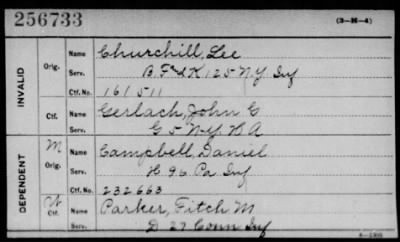 256733 (3-H-4)
INVALID
Orig. Name Churchill, Lee
Serv. B. F and K 125 NY Inf
Ctf. No. 161511
Ctf. Name Gerlach, John G
Serv. G 5 NY H A
DEPENDENT
M Orig. Name Campbell, Daniel
Serv. H 96 Pa Inf
Ctf. No. 232663
Ctf. Name Parker, Fitch M
Serv. D 27 Conn Inf